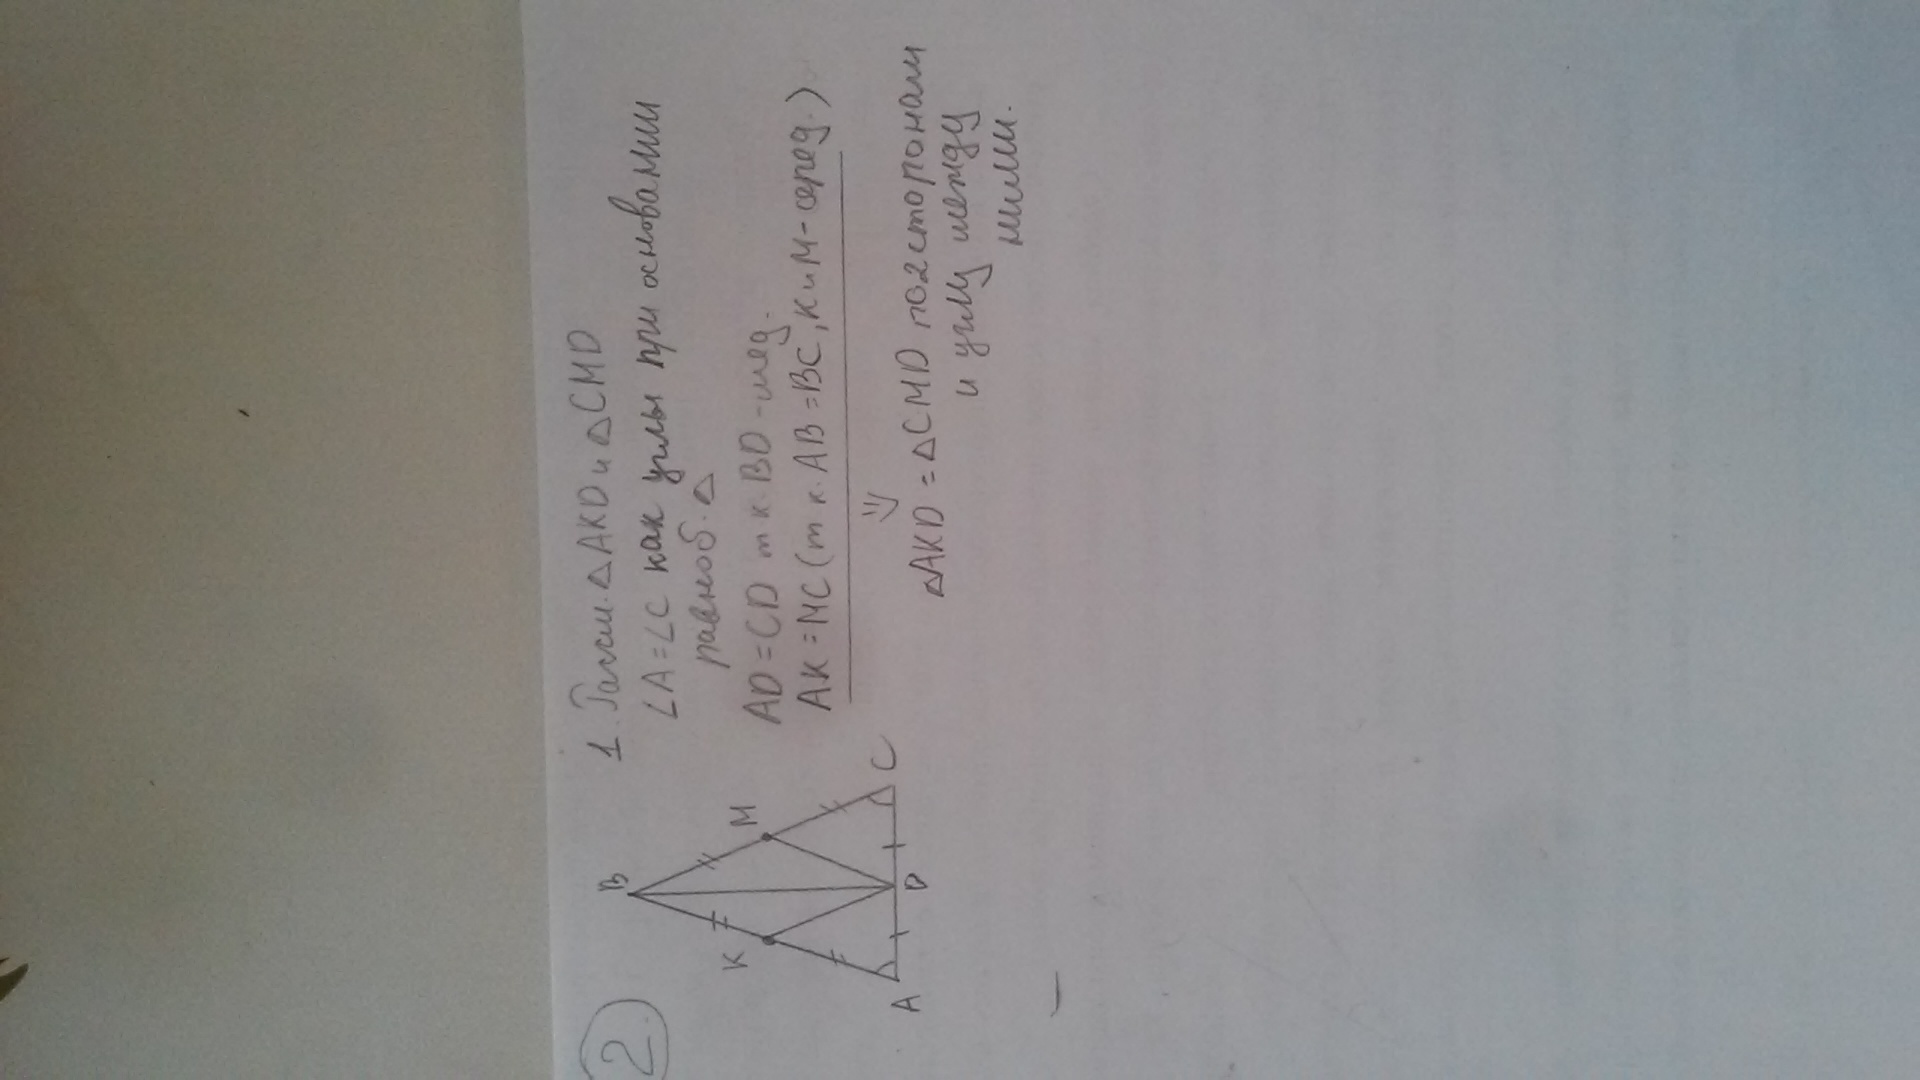 2.
B
K
M
A
D
C
1. Рассм. △AKD и △CMD
∠A=∠C как углы при основании
равноб. △
AD=CD т к. BD-мед.
AK=MC (т к. AB=BC, K и M-серед.)
⇓
△AKD = △CMD по 2 сторонам
и углу между
ними.